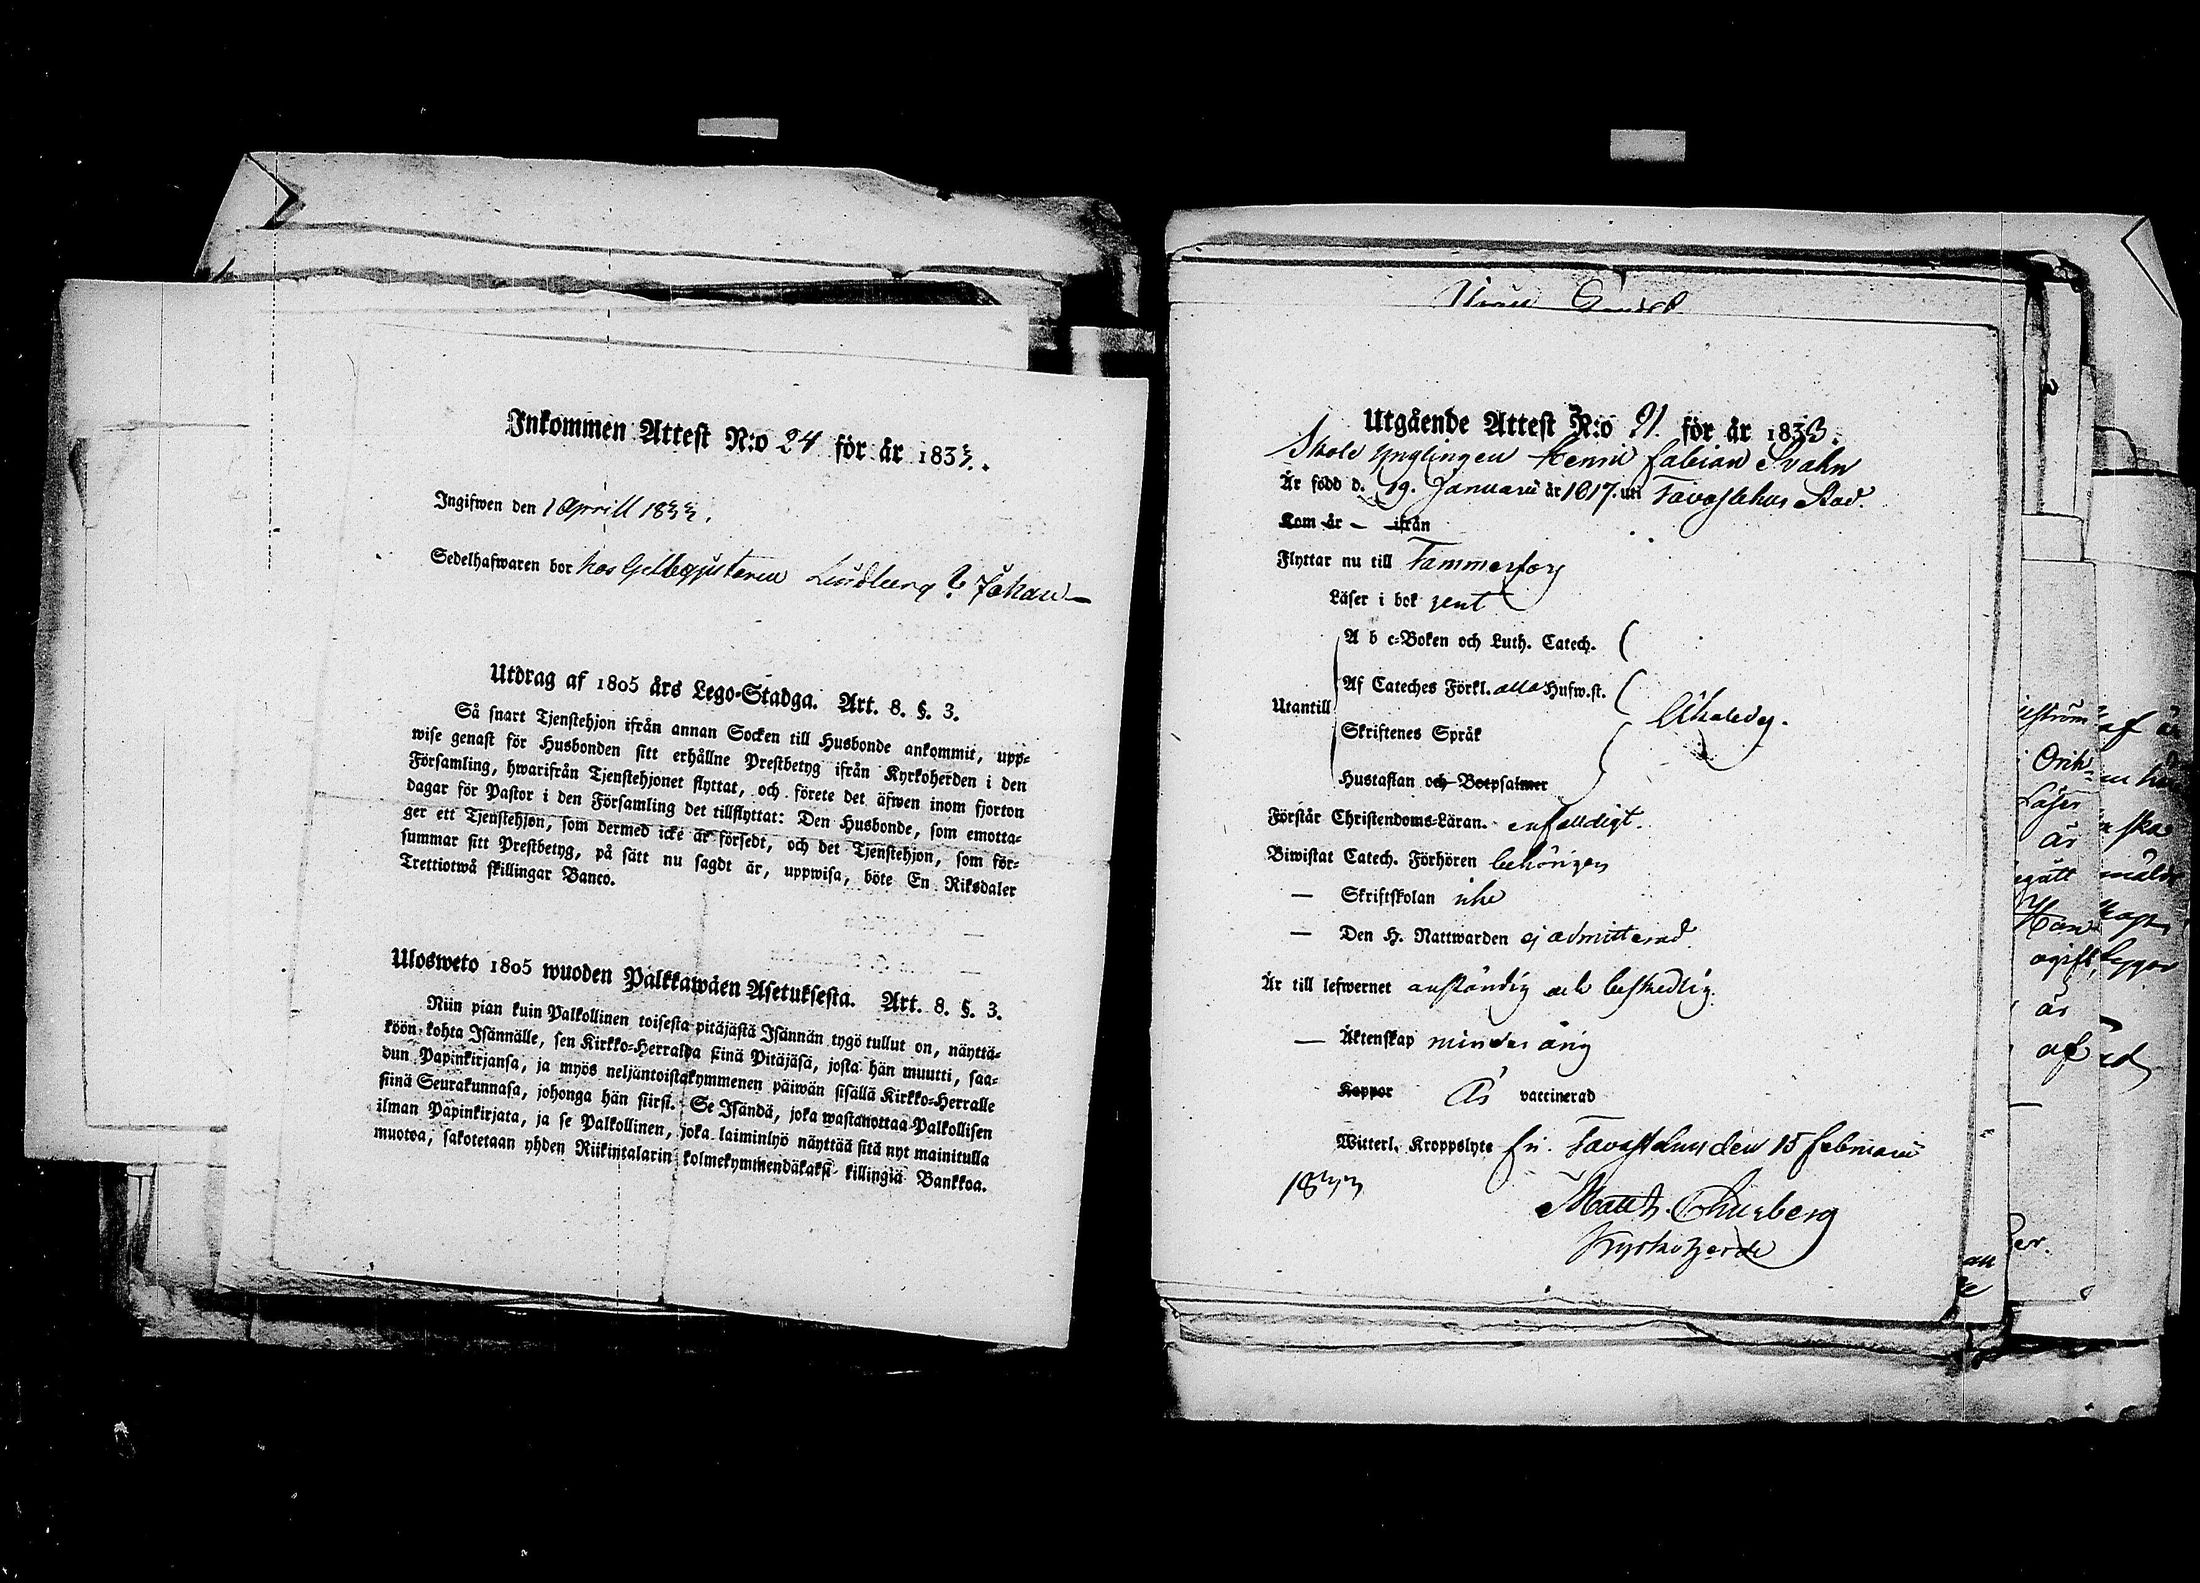 Inkommen Attest N:o 24 för år 1833.
Ingifwen den 1 Aprill 1833.
Sedelhafwaren bor hos Lindberg Johan
Utdrag af 1805 års Lego-Stadga. Art. 8. §. 3.
Så snart Tjenstehjon ifrån annan Socken till Husbonde ankommit, upp-
wise genast för Husbonden sitt erhållne Prestbetyg ifrån Kyrkoherden i den
Församling, hwarifrån Tjenstehjonet flyttat, och förete det äfwen inom fjorton
dagar för Pastor i den Församling det tillflyttat: Den Husbonde, som emotta-
ger ett Tjenstehjon, som dermed icke är försedt, och det Tjenstehjon, som för-
summar sitt Prestbetyg, på sätt nu sagdt är, uppwisa, böte En Riksdaler
Trettiotwå skillingar Banco.
Ulosweto 1805 wuoden Palkkawäen Asetuksesta. Art. 8. §. 3.
Niin pian kuin Palkollinen toisesta pitäjästä Isännän tygö tullut on, näyttä-
köön kohta Isännälle, sen Kirkko-Herralda siinä Pitäjäsä, josta hän muutti, saa-
dun Papinkirjansa, ja myös neljäntoistakymmenen päiwän sisällä Kirkko-Herralle
siinä Seurakunnasa, johonga hän siirsi. Se Isändä, joka wastanottaa Palkollisen
ilman Papinkirjata, ja se Palkollinen, joka laiminlyö näyttää sitä nyt mainitulla
muotoa, sakotetaan yhden Riikintalarin kolmekymmendäkaksi killingiä Bankkoa.
Utgående Attest N:o 21. för år 1833.
Skole Ynglingen Henric Fabian Svahn
Är född d. 19. Januarii år 1817. uti Tavastehus Stad.
Kom år – ifrån
Flyttar nu till Tammerfors
Läser i bok rent
A b c-Boken och Luth. Catech.
Af Cateches Förkl. alla Hufw.st.
Utantill
Skriftenes Språk
Hustaflan och Botpsalmer
Förstår Christendoms-Läran. enfalldigt.
Biwistat Catech. Förhören behörigen
— Skriftskolan icke
— Den H. Nattwarden ej admitterad
Är till lefwernet anständig och beskedlig.
— Äktenskap minderårig
Koppor Är vaccinerad
Witterl. Kroppslyte fri. Tavastehus den 15 Februarii
1833
Matth. Thurberg
Kyrkoherde